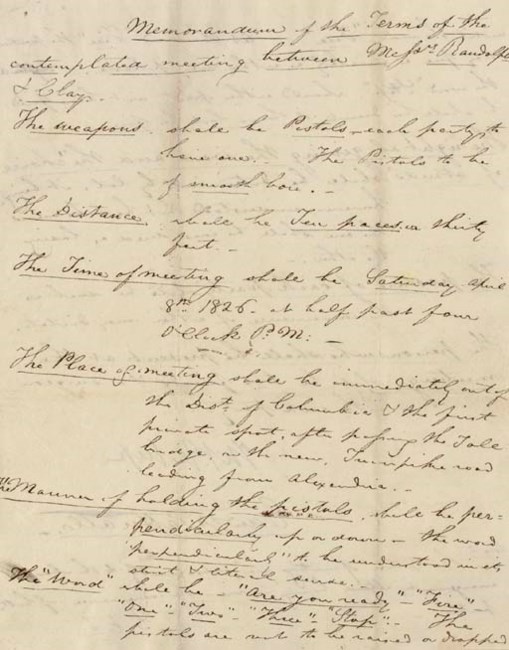 Memorandum of the Terms of the
contemplated meeting between Messrs. Randolph
& Clay.
The weapons. shall be Pistols – each party to
have one. – The Pistols to be
of smooth bore. –
The Distance. shall be Ten paces or thirty
feet. –
The Time of meeting shall be Saturday April
8th. 1826. at half past four
O'Clock P. M: –
The Place of meeting shall be immediately out of
the Dist. of Columbia & the first
private spot, after passing the Tole
bridge, on the new Turnpike road
leading from Alexandria. –
The Manner of holding the pistols. shall be per-
pendicularly up or down – the word
"perpendicularly" to be understood in its
strict & literal sense. –
The "Word" shall be – "Are you ready" – "Fire"
"One" – "Two" – "Three" – "Stop" – The
pistols are not to be raised or dropped